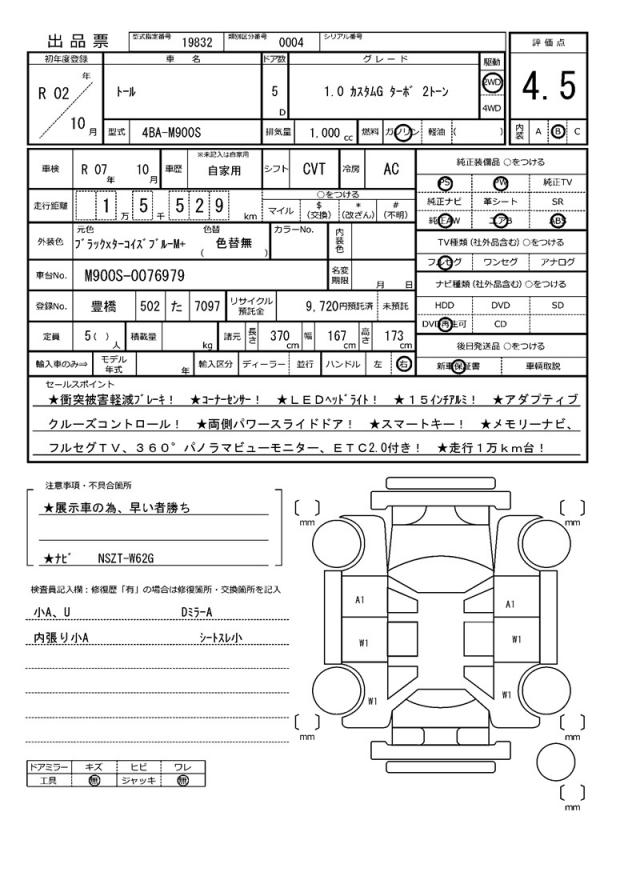 出品票 型式指定番号 19832 類別区分番号 0004 シリアル番号
初年度登録 車名 ドア数 グレード 駆動 評価点
R 02 年 10 月 トール 5 D 1.0 カスタムG ターボ 2トーン 2WD 4WD 4.5
型式 4BA-M900S 排気量 1.000 cc 燃料 ガソリン 軽油 ( ) 内装 A B C
車検 R 07 年 10 月 車歴 ※未記入は自家用 自家用 シフト CVT 冷房 AC
純正装備品 ○をつける
PS PW 純正TV
純正ナビ 革シート SR
純正AW エアB ABS
走行距離 1 万 5 千 5 2 9 km ○をつける マイル $ (交換) * (改ざん) # (不明)
外装色 元色 ブラックxターコイズブルーM+ 色替 ( 色替無 ) カラーNo. 内装色
TV種類 (社外品含む) ○をつける
フルセグ ワンセグ アナログ
車台No. M900S-0076979 名変期限 月 日
ナビ種類 (社外品含む) ○をつける
HDD DVD SD
DVD再生可 CD
登録No. 豊橋 502 た 7097 リサイクル預託金 9,720円預託済 未預託
定員 5( ) 人 積載量 kg 諸元 長さ 370 cm 幅 167 cm 高さ 173 cm
後日発送品 ○をつける
新車保証書 車輌取説
輸入車のみ⇒ モデル年式 年 輸入区分 ディーラー 並行 ハンドル 左 右
セールスポイント
★衝突被害軽減ブレーキ! ★コーナーセンサー! ★LEDヘッドライト! ★15インチアルミ! ★アダプティブ
クルーズコントロール! ★両側パワースライドドア! ★スマートキー! ★メモリーナビ、
フルセグTV、360°パノラマビューモニター、ETC2.0付き! ★走行1万km台!
注意事項・不具合箇所
★展示車の為、早い者勝ち
★ナビ NSZT-W62G
検査員記入欄:修復歴「有」の場合は修復箇所・交換箇所を記入
小A、U DミラーA
内張り小A シートスレ小
ドアミラー キズ ヒビ ワレ
工具 無 ジャッキ 無
[ ] mm [ ] mm
A1 A1
W1 W1
W1 W1
[ ] mm [ ] mm
[ ] mm